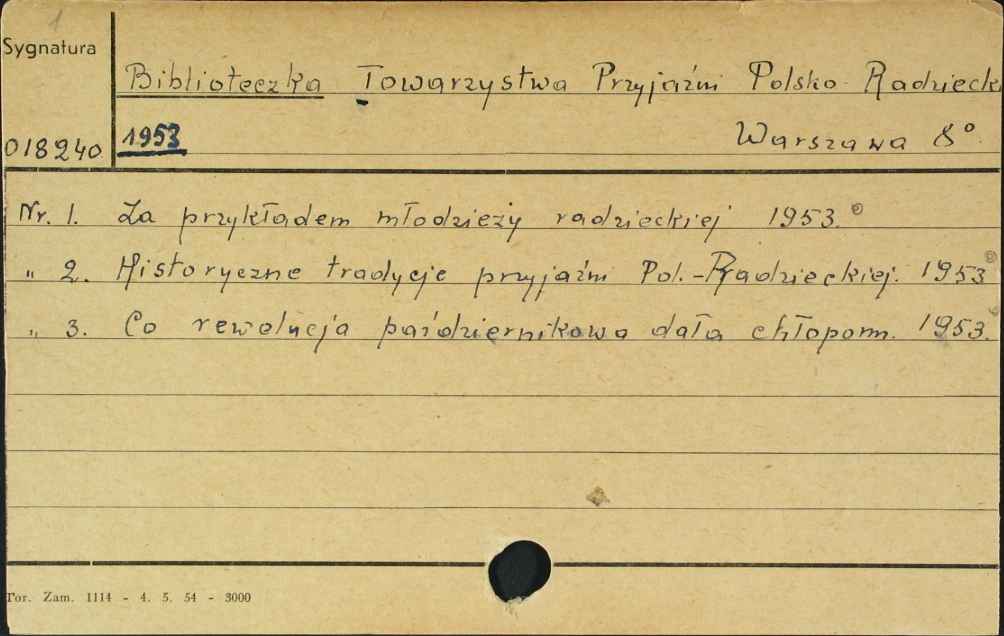 1
Sygnatura
Biblioteczka Towarzystwa Przyjaźni Polsko-Radzieck
018240 1953 Warszawa 8°.
Nr. 1. Za przykładem młodzieży radzieckiej 1953.
„ 2. Historyczne tradycje przyjaźni Pol.-Radzieckiej. 1953
„ 3. Co rewolucja październikowa dała chłopom. 1953.
Tor. Zam. 1114 - 4. 5. 54 - 3000